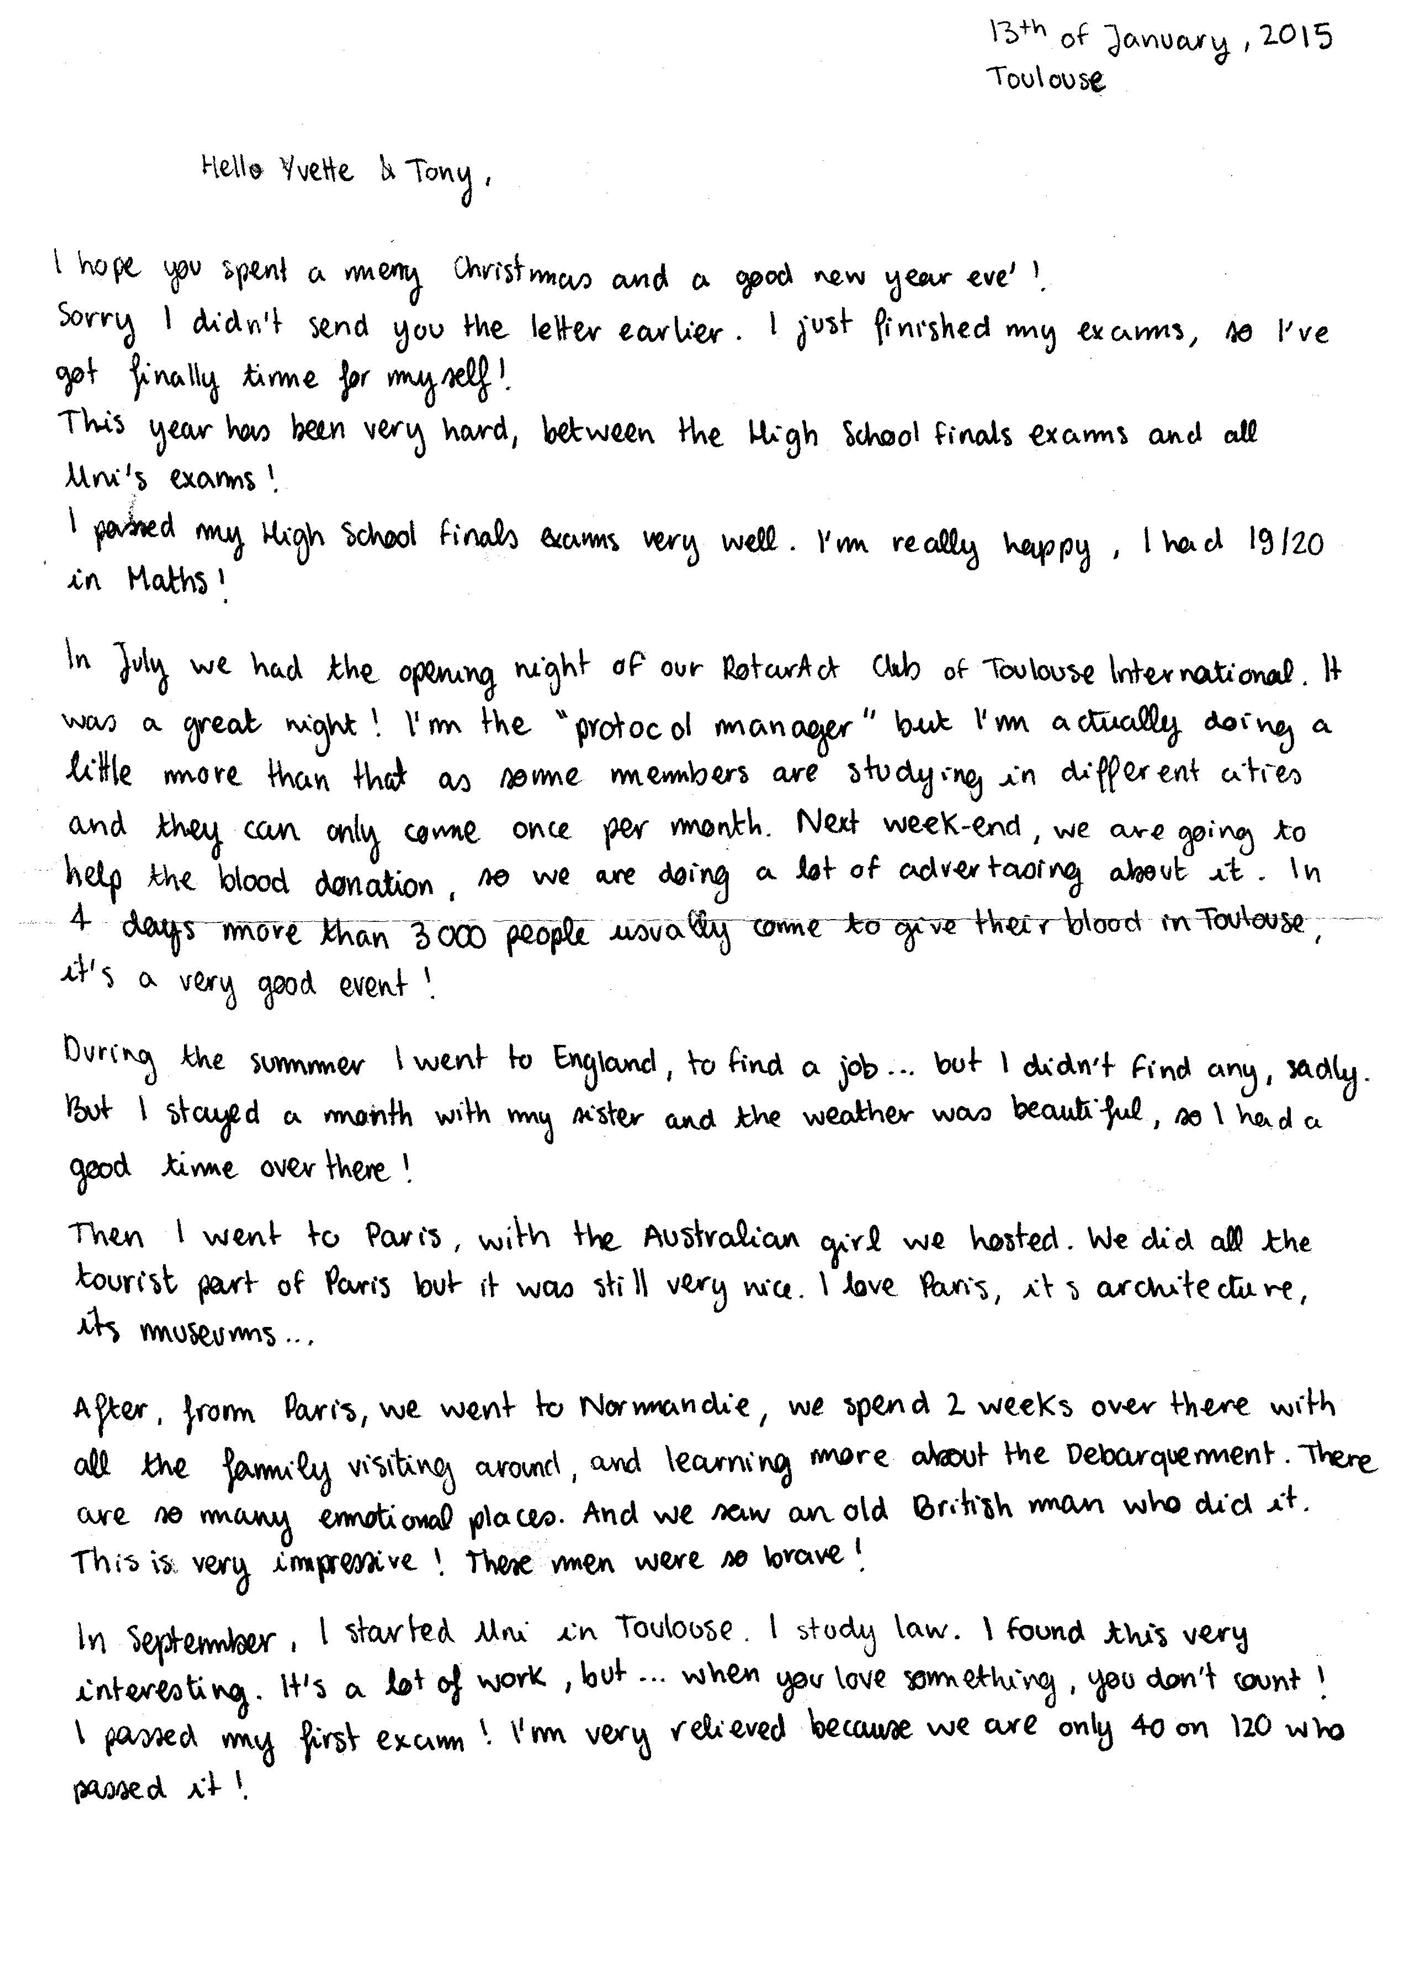 13th of January, 2015
Toulouse
Hello Yvette & Tony,
I hope you spent a merry Christmas and a good new year eve' !
Sorry I didn't send you the letter earlier. I just finished my exams, so I've
got finally time for myself!
This year has been very hard, between the High School finals exams and all
Uni's exams !
I passed my High School finals exams very well. I'm really happy, I had 19/20
in Maths !
In July we had the opening night of our RotarAct Club of Toulouse International. It
was a great night ! I'm the "protocol manager" but I'm actually doing a
little more than that as some members are studying in different cities
and they can only come once per month. Next week-end, we are going to
help the blood donation, so we are doing a lot of advertasing about it. In
4 days more than 3000 people usually come to give their blood in Toulouse,
it's a very good event !
During the summer I went to England, to find a job... but I didn't find any, sadly.
But I stayed a month with my sister and the weather was beautiful, so I had a
good time over there !
Then I went to Paris, with the Australian girl we hosted. We did all the
tourist part of Paris but it was still very nice. I love Paris, it s architecture,
its museums...
After, from Paris, we went to Normandie, we spend 2 weeks over there with
all the family visiting around, and learning more about the Debarquement. There
are so many emotional places. And we saw an old British man who did it.
This is very impressive ! These men were so brave !
In September, I started Uni in Toulouse. I study law. I found this very
interesting. It's a lot of work, but ... when you love something, you don't count !
I passed my first exam ! I'm very relieved because we are only 40 on 120 who
passed it !